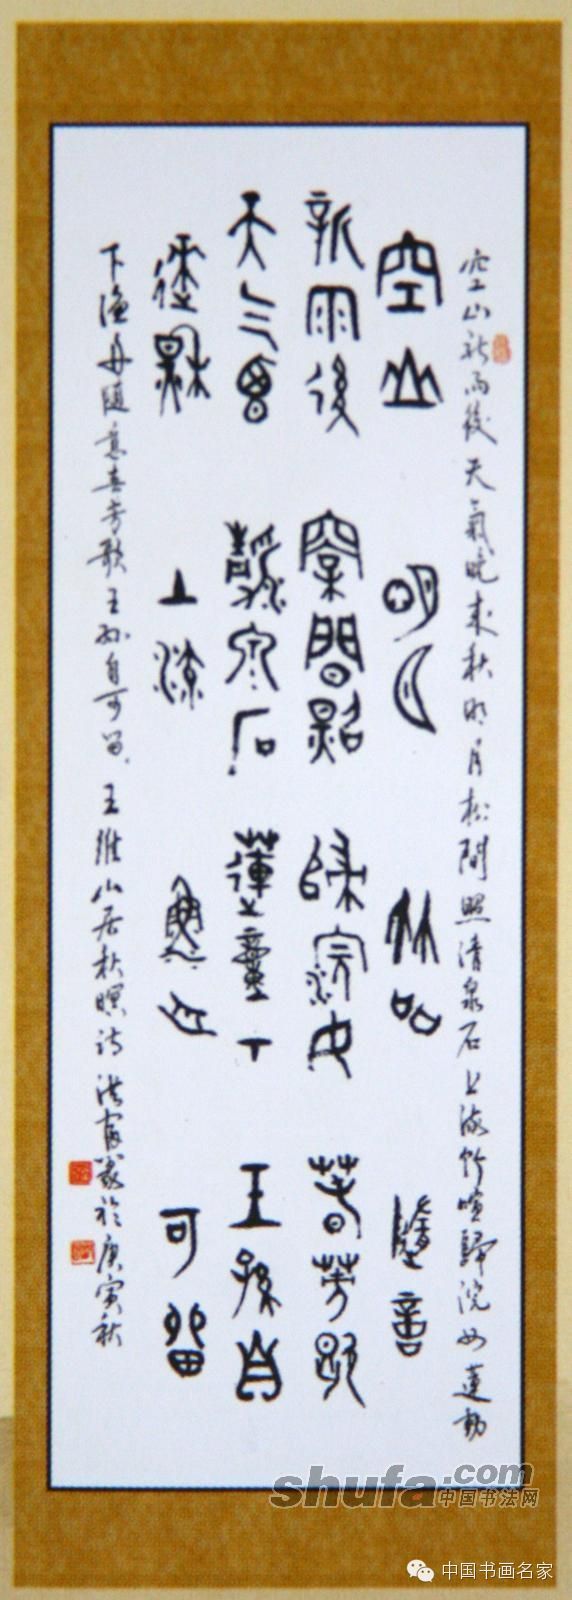 空山新雨後天氣晚來秋明月松間照清泉石上流竹喧歸浣女蓮動
空山
新雨後
天气晚
來秋
明月
松間照
清泉石
上流
竹喧
歸浣女
蓮動下
漁舟
隨意
春芳歇
王孫自
可留
下漁舟隨意春芳歇王孫自可留 王維山居秋暝詩 於庚寅秋
shufa.com
中国书法网
中国书画名家